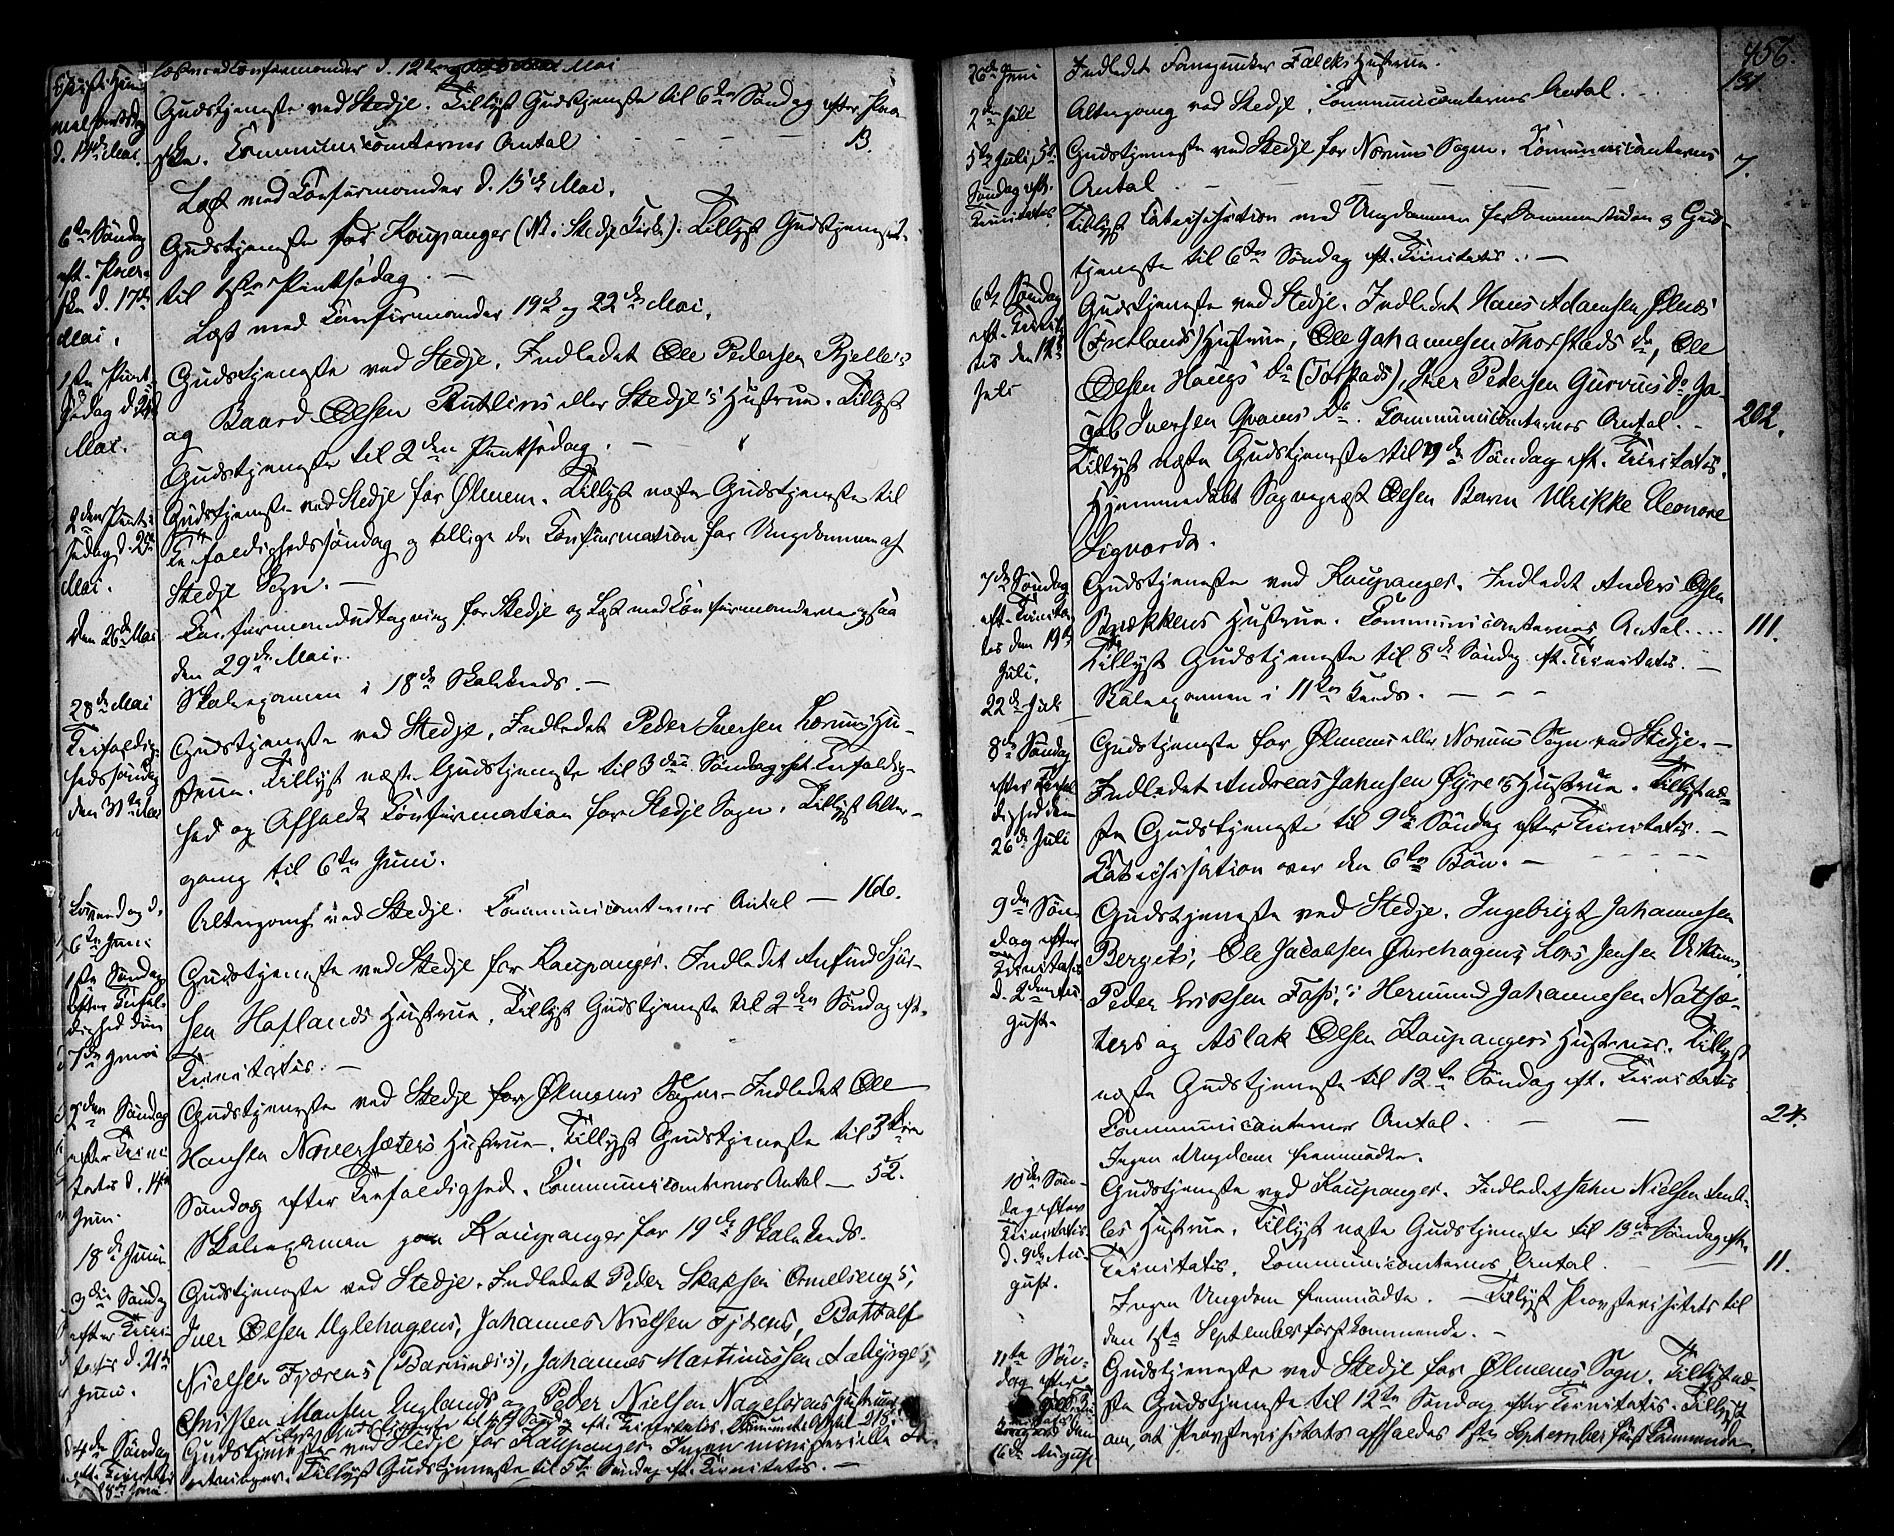 Læst med Confirmander d. 12te Mai
Christi Himmelfartsdag d. 14de Mai. Gudstjeneste ved Stedje. Tillyst Gudstjeneste til 6te Søndag efter Paa-
ske. Communicanternes Antal - - - - 13.
Læst med Confirmander d. 15de Mai.
6te Søndag eft. Paaske d. 17de Mai. Gudstjeneste for Kaupanger (NB. i Stedje Kirke). Tillyst Gudstjeneste
til 1ste Pintsedag. —
Læst med Confirmander 19de og 22de Mai.
1ste Pintsedag d. 24de Mai. Gudstjeneste ved Stedje. Indledet Ole Pedersen Bjelle's
og Baard Olsen Rutlins eller Stedje's Hustrue. Tillyst
Gudstjeneste til 2den Pintsedag. —
2den Pintsedag d. 25de Mai. Gudstjeneste ved Stedje for Ølmem. Tillyst næste Gudstjeneste til
Trefoldighedssøndag og tillige da Confirmation for Ungdommen af
Stedje Sogn. —
Den 26de Mai Confirmandudtagning for Stedje og Læst med Confirmanderne ogsaa
den 29de Mai.
28de Mai Skoleexamen i 18de Skolekreds. —
Trefoldighedssøndag den 31te Mai Gudstjeneste ved Stedje. Indledet Peder Iversen Lorums Hu-
strue. Tillyst næste Gudstjeneste til 3die Søndag eft. Trefoldig-
hed og Afholdt Confirmation for Stedje Sogn. Tillyst Alter-
gang til 6te Juni.
Løverdag d. 6te Juni Altergang ved Stedje. Communicanternes Antal — 166.
1ste Søndag efter Trefoldighed den 7de Juni Gudstjeneste ved Stedje for Kaupanger. Indledet Anfind Sjur-
sen Haflands Hustrue. Tillyst Gudstjeneste til 2den Søndag eft.
Trinitatis. —
2den Søndag efter Trinitatis d. 14de Juni. Gudstjeneste ved Stedje for Ølmems Sogn — Indledet Ole
Hansen Navarsæters Hustrue. Tillyst Gudstjeneste til 3die
Søndag efter Trefoldighed. Communicanternes Antal — 52.
18de Juni Skoleexamen paa Kaupanger for 19de Skolekreds.
3die Søndag efter Trinitatis d. 21de Juni. Gudstjeneste ved Stedje. Indledet Peder Skaksen Amelsengs,
Iver Olsen Uglehagens, Johannes Nielsen Fjærens, Botholf
Nielsen Fjærens (Barsnæs's), Johannes Martinussen Aabjerges,
Christen Monsen Englands og Peder Nielsen Nagelørens Hustruer
Tillyst Gudstjeneste til 4de Sønd. eft. Trinitatis. Communic. Antal 215
4de Søndag eft. Trinitatis 28de Juni Gudstjeneste ved Stedje for Kaupanger. Ingen ministerielle For-
retninger. Tillyst Gudstjeneste til 5te Søndag eft. Trinitatis. —
456.
26de Juni Indledet Farveriker Falcks Hustrue.
2den Juli Altergang ved Stedje. Communicanternes Antal. 131
5te Juli, 5te Søndag eft. Trinitatis Gudstjeneste ved Stedje for Norums Sogn. Communicanternes
Antal — — — — 7.
Tillyst Catechisation med Ungdommen for Sommertiden og Guds-
tjeneste til 6te Søndag eft. Trinitatis. —
6te Søndag eft. Trinitatis den 12te Juli Gudstjeneste ved Stedje. Indledet Hans Adamsen Ølnæs
(Fretlands) Hustrue, Ole Johannesen Thorstads do, Ole
Olsen Haugs do (Torstads), Iver Pedersen Gurvins do, Ja-
cob Iversen Qvams do. Communicanternes Antal. - 202.
Tillyst næste Gudstjeneste til 9de Søndag eft. Trinitatis.
Hjemmedøbt Sogneprest Olsen Barn Ulrikke Eleonore
Sigvarda.
7de Søndag eft. Trinitatis den 19de Juli. Gudstjeneste ved Kaupanger. Indledet Anders Olsen
Brækkens Hustrue. Communicanternes Antal.... 111.
Tillyst Gudstjeneste til 8de Søndag eft. Trinitatis. —
22de Juli Skoleexamen i 11te Kreds. — — —
8de Søndag efter Trefoldighed den 26de Juli Gudstjeneste for Ølmems eller Norums Sogn ved Stedje. —
Indledet Andreas Johnsen Øyre's Hustrue. Tillyst næ-
ste Gudstjeneste til 9de Søndag efter Trinitatis. —
Catechisation over den 6te Bøn. —
9de Søndag efter Trinitatis d. 2den August. Gudstjeneste ved Stedje. Ingebrigt Johannesen
Bergets, Ole Jacobsen Øvrehagens, Lars Jensen Vikums,
Peder Eriksen Foss's, Hermund Johannesen Natsæ-
ters og Aslak Olsen Kaupangers Hustruer. Tillyst
næste Gudstjeneste til 12te Søndag eft. Trinitatis
Communicanternes Antal. — — 24.
Ingen Ungdom fremmødte.
10de Søndag efter Trinitatis d. 9de August. Gudstjeneste ved Kaupanger. Indledet John Nielsen Amb-
les Hustrue. Tillyst næste Gudstjeneste til 13de Søndag eft.
Trinitatis. Communicanternes Antal. — 11.
Ingen Ungdom fremmødte. — Tillyst Provstevisitats til
den 1ste September førstkommende. —
11te Søndag efter Trinitatis den 16de August. Gudstjeneste ved Stedje for Ølmems Sogn. Tillyst næ-
ste Gudstjeneste til 12te Søndag efter Trinitatis. Tillyst
om, at Provstevisitats afholdes 1ste September førstkommende.